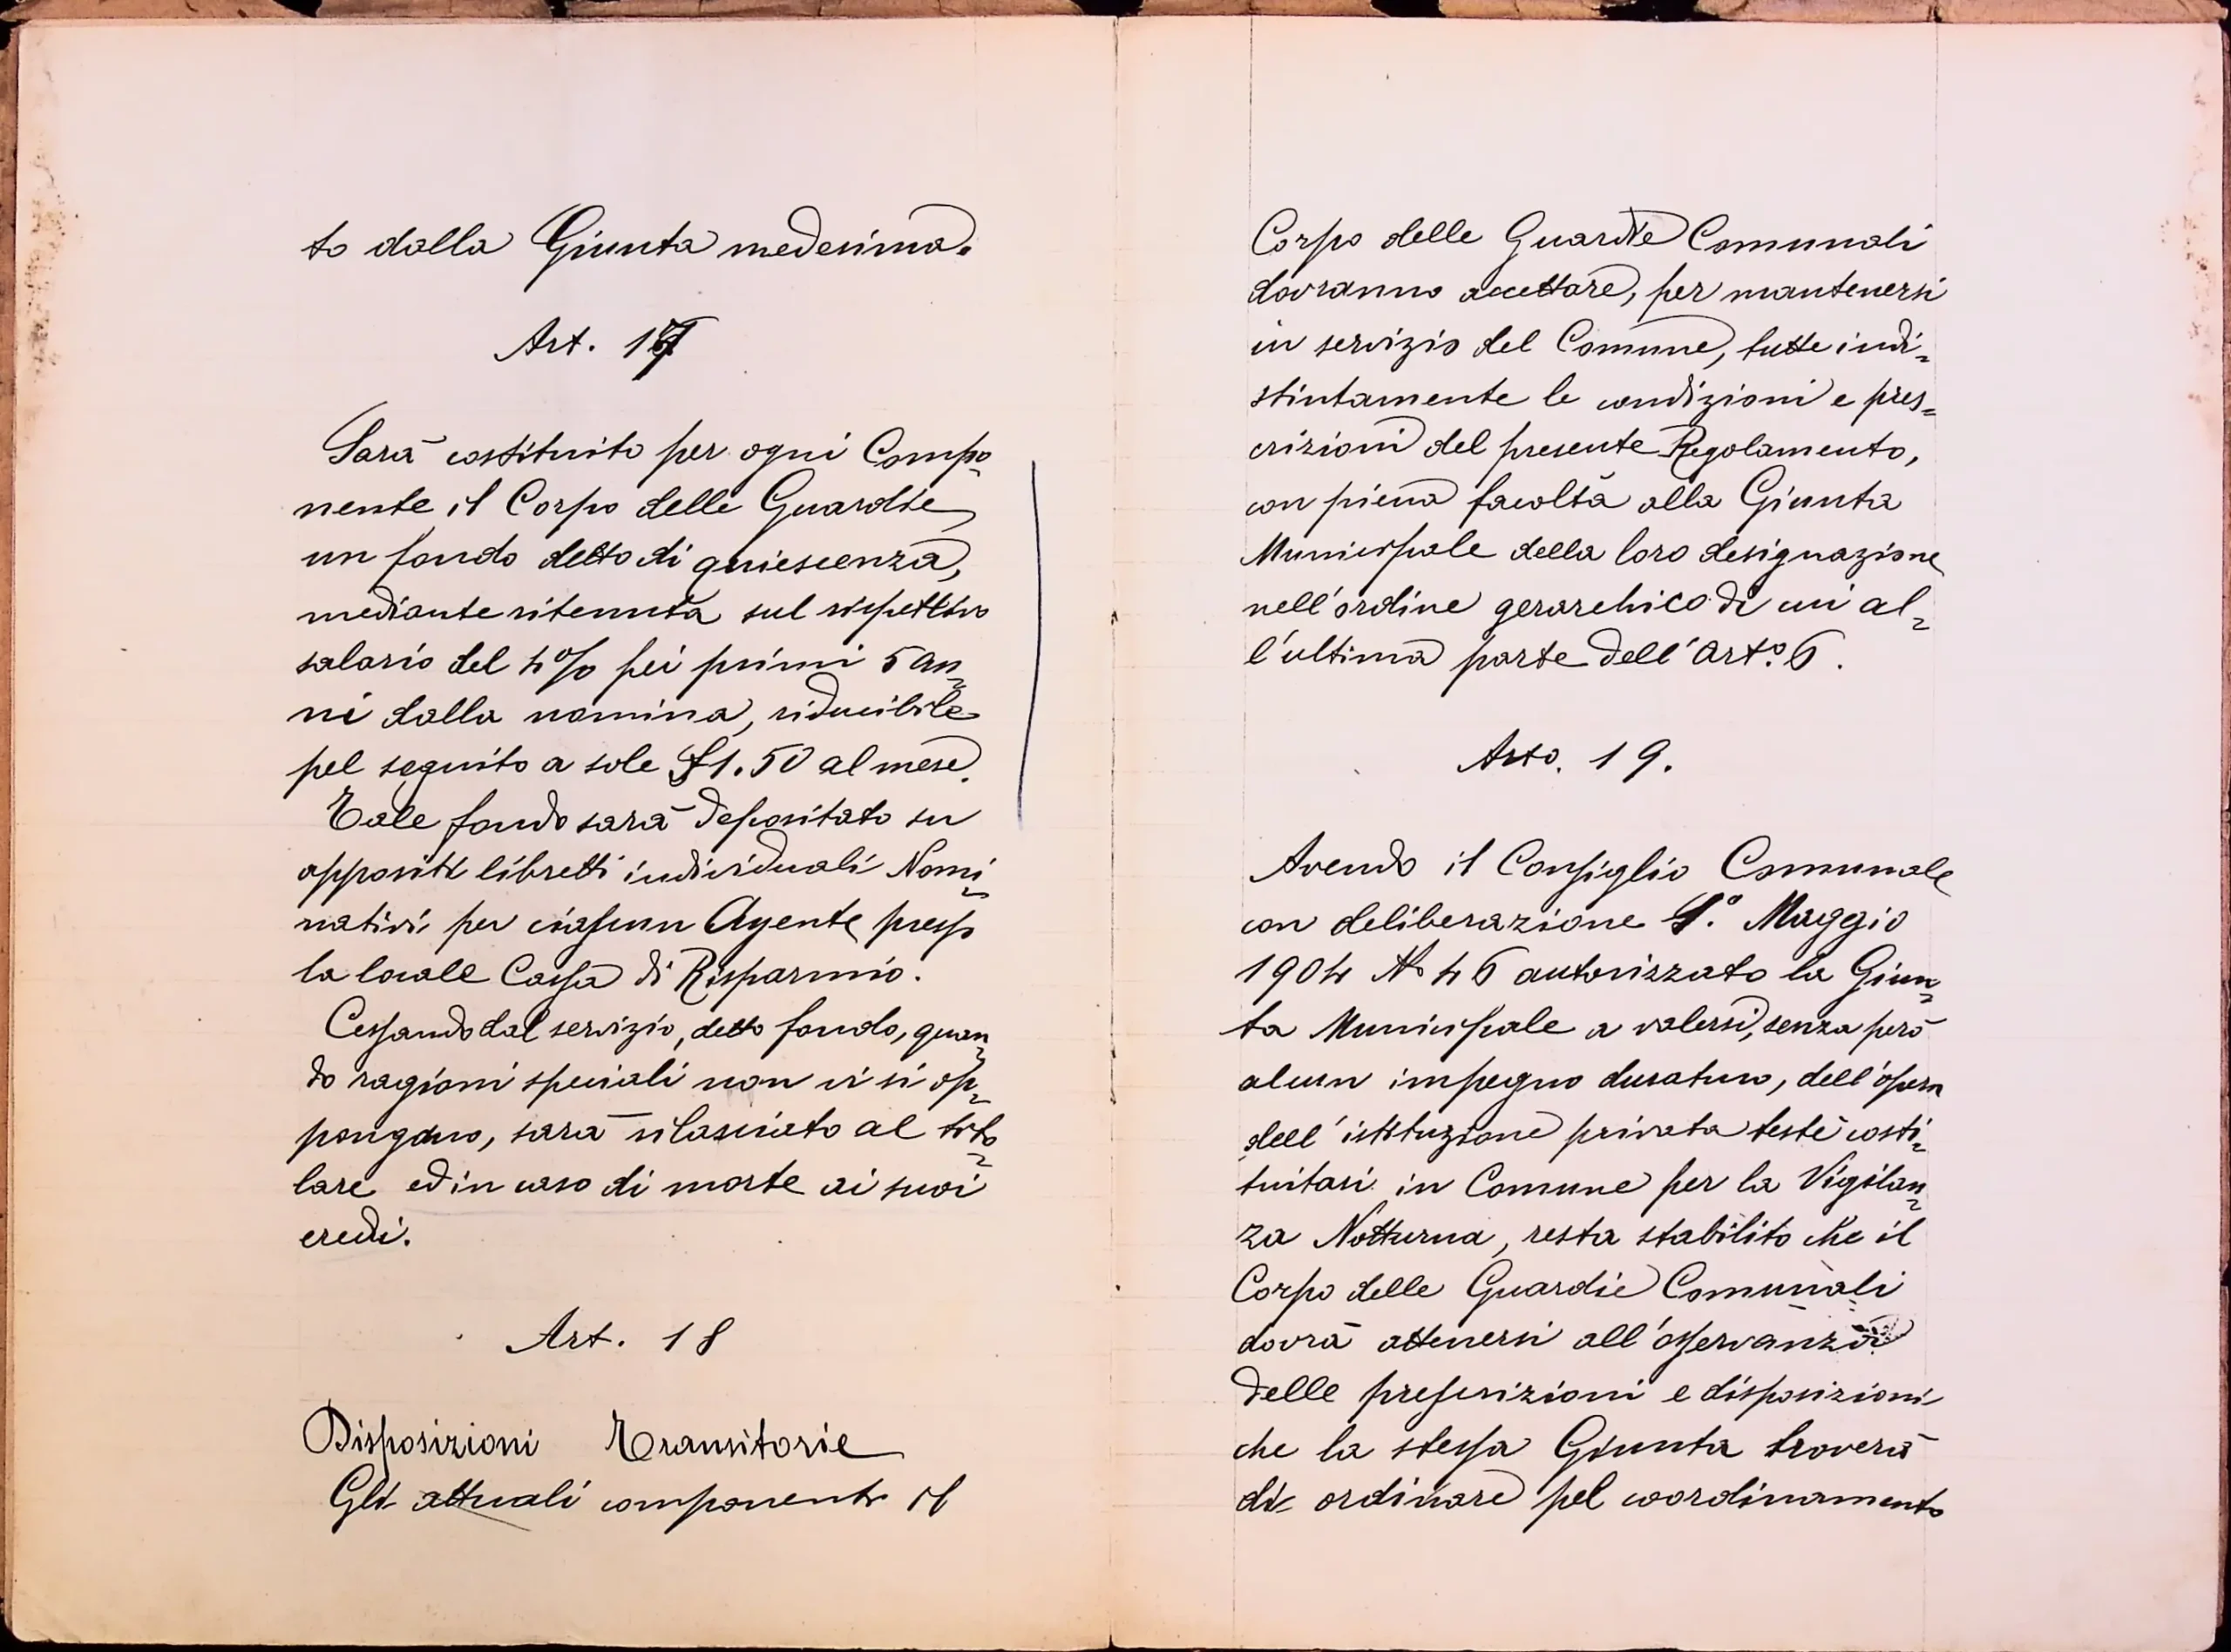 to dalla Giunta medesima.
Art. 17
Sarà costituito per ogni Compo-
nente il Corpo delle Guardie,
un fondo detto di quiescenza,
mediante ritenuta sul rispettivo
salario del 4% pei primi 5 an-
ni dalla nomina, riducibile
pel seguito a sole £1.50 al mese.
Tale fondo sarà depositato su
appositi libretti individuali Nomi-
nativi per ciascun Agente presso
la locale Cassa di Risparmio.
Cessando dal servizio, detto fondo, quan-
do ragioni speciali non vi si op-
pongano, sarà rilasciato al tito-
lare ed in caso di morte ai suoi
eredi.
Art. 18
Disposizioni Transitorie
Gli attuali componenti il
Corpo delle Guardie Comunali
dovranno accettare, per mantenersi
in servizio del Comune, tutte indi-
stintamente le condizioni e pres-
crizioni del presente Regolamento,
con piena facoltà alla Giunta
Municipale della loro designazione
nell'ordine gerarchico di cui al-
l'ultima parte dell'Arto. 6.
Arto. 19.
Avendo il Consiglio Comunale
con deliberazione 1o. Maggio
1904 No 46 autorizzato la Giun-
ta Municipale a valersi, senza però
alcun impegno duraturo, dell'opera
dell'istituzione privata testè costi-
tuitasi in Comune per la Vigilan-
za Notturna, resta stabilito che il
Corpo delle Guardie Comunali
dovrà attenersi all'osservanza
delle prescrizioni e disposizioni
che la stessa Giunta troverà
di ordinare pel coordinamento